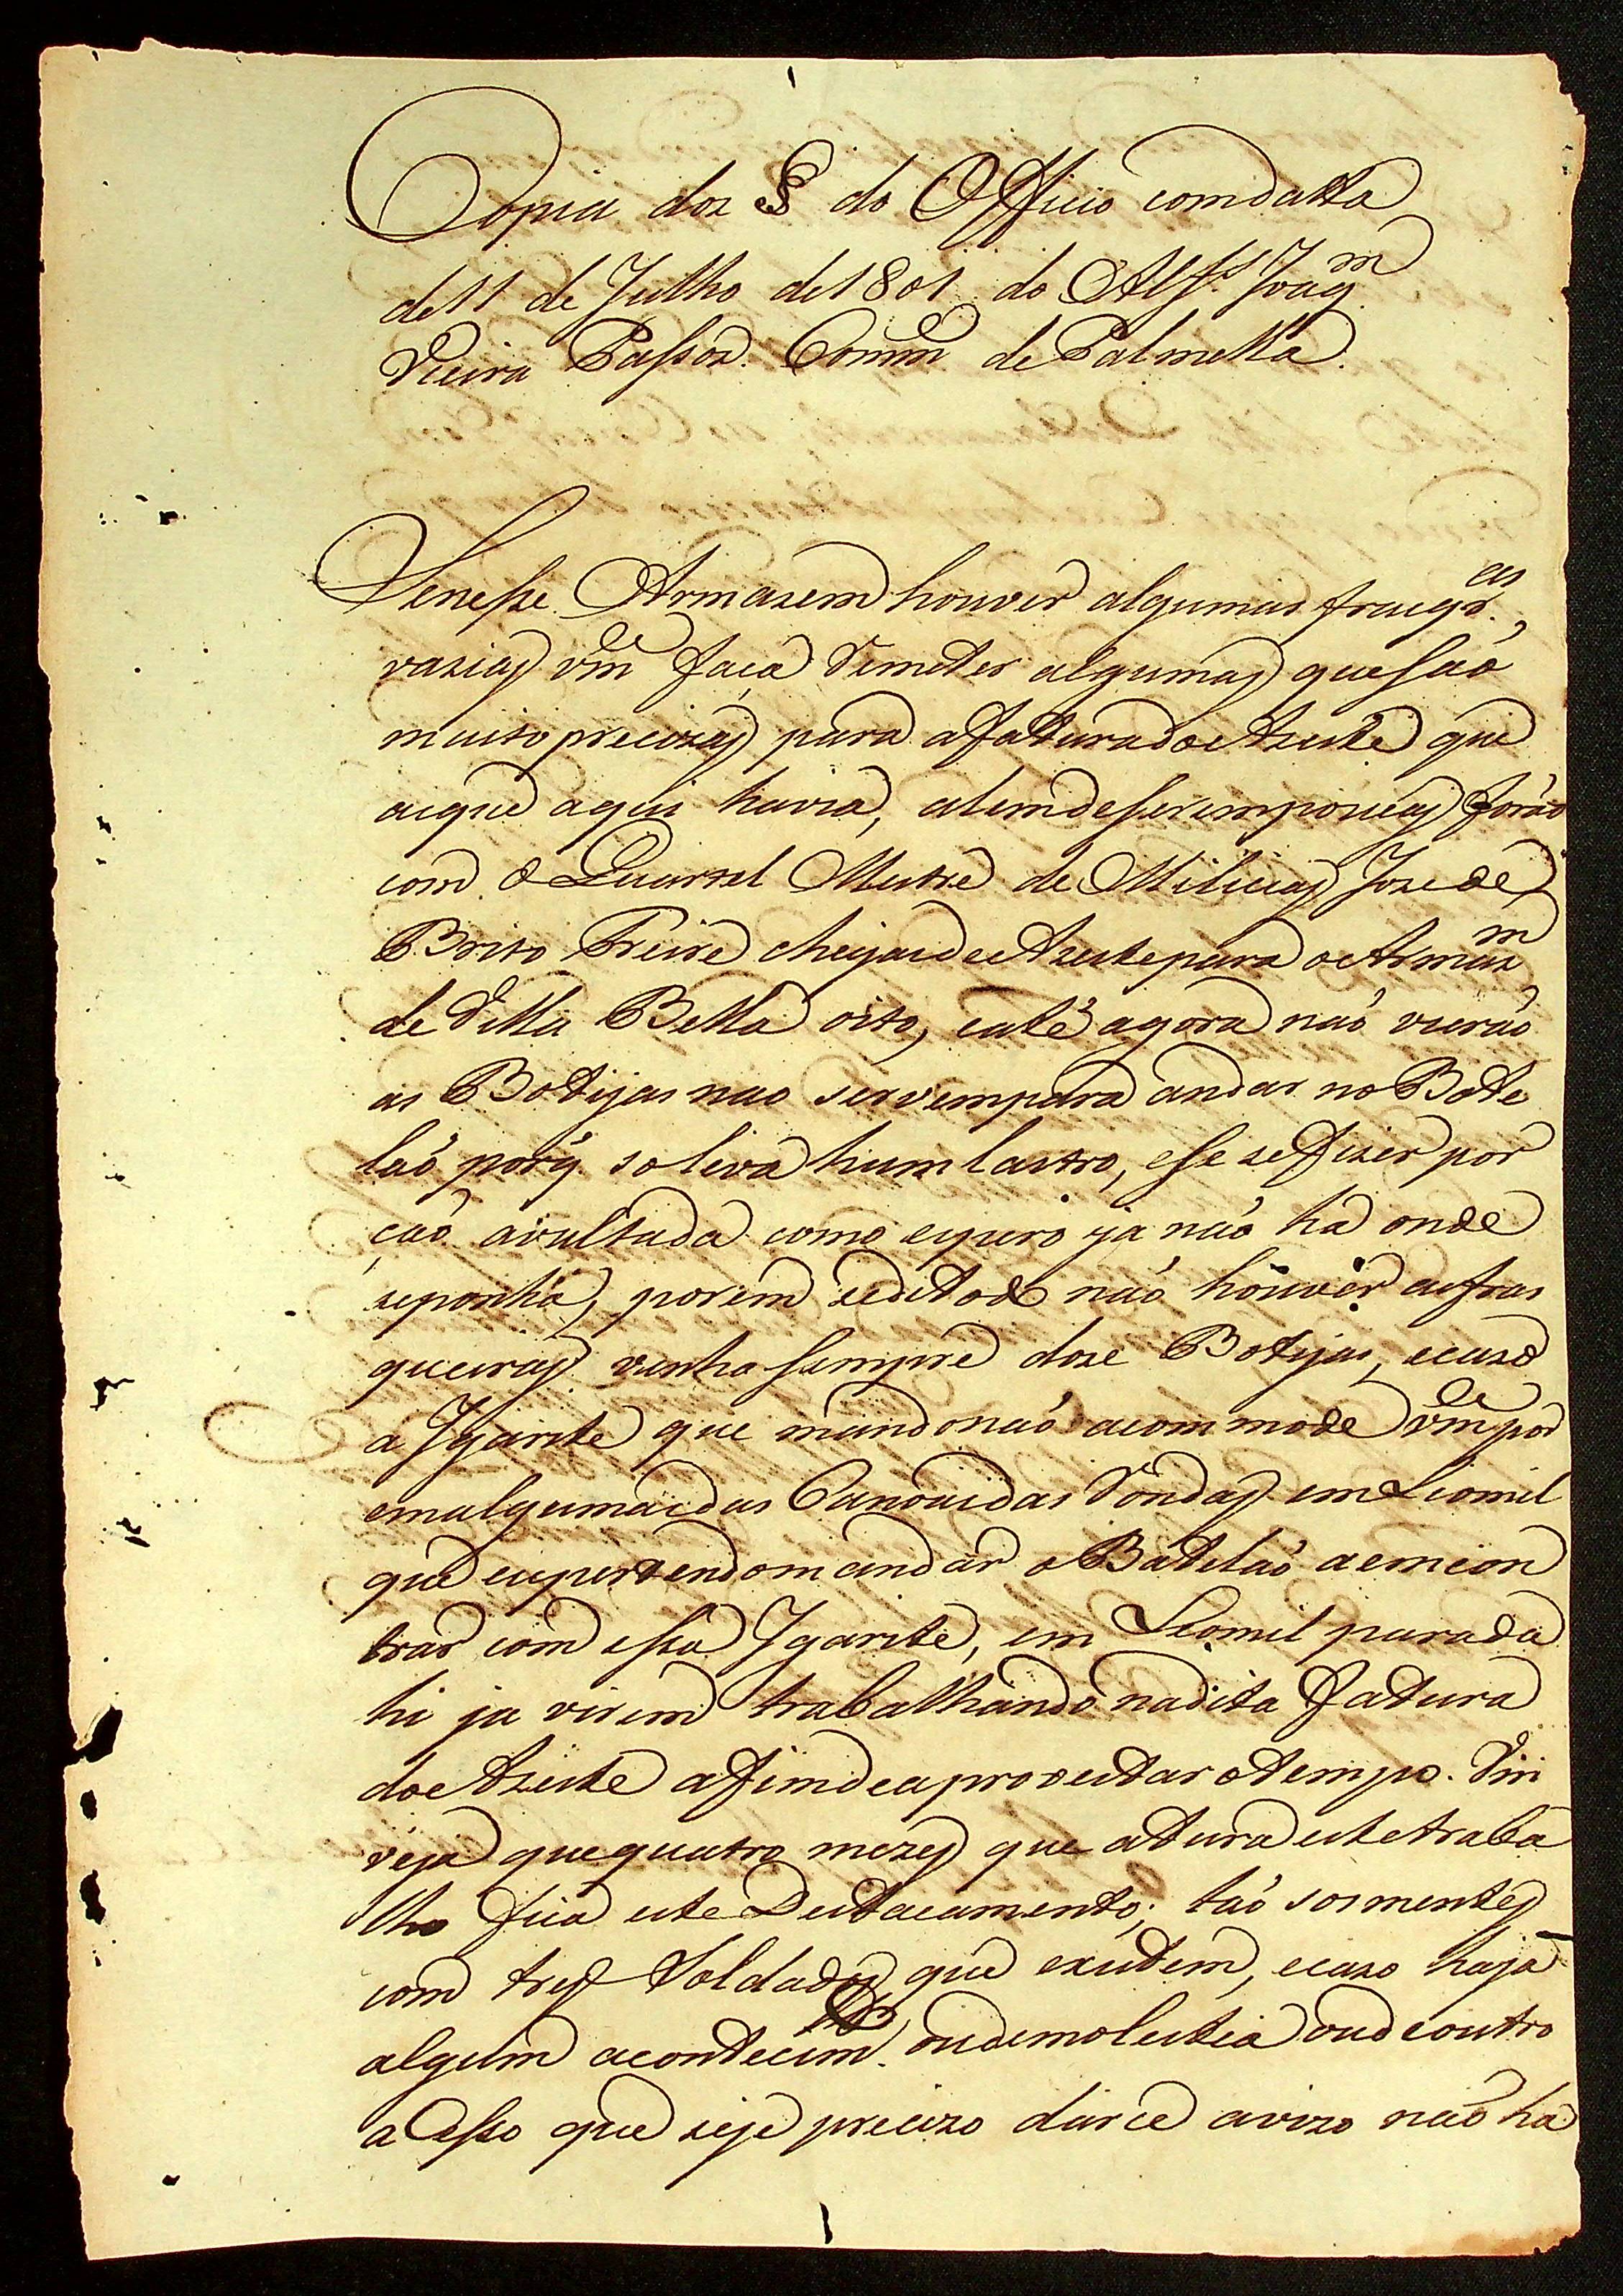 Copia dos § do Officio com data
de 11 de Julho de 1801 do Alfs. Joaqm
Vieira Passos. Commde de Palmella.
Se nesse Armasem houver algumas frasqras.,
vasias Vmce faça remeter algumas que saõ
muito precizas para a fatura do Azeite que
as que aqui havia, alem de serem poucas foraõ
com o Quartel Mestre de Milicias Joze de
Brito Freire cheyas de Azeite para o Armazm
de Villa Bella oito, e até agora naõ vieraõ
as Botijas nao servem para andar no Bate
laõ porq̃ so leva hum lastro, e se se fizer por
çaõ avultada como espero ja naõ ha onde
se ponha, porem se de todo naõ houver as fras
queiras venha sempre doze Botijas, e cazo
a Igarite que mando naõ acommode Vmce por
em algumas das Canoas das Rondas em Leomil
que eu pertendo mandar o Batelaõ a encon
trar com essa Igarite, em Leomil para da
hi ja virem trabalhando na dita fatura
do Azeite a fim de aproveitar o tempo. Vm
veja que quatro mezes que atura este traba
lho fica este Destacamento, taõ somentes
com tres Soldados que existem, e cazo haja
algum acontecimto. ou de molestia ou de outro
acesso que seje precizo darce avizo naõ ha